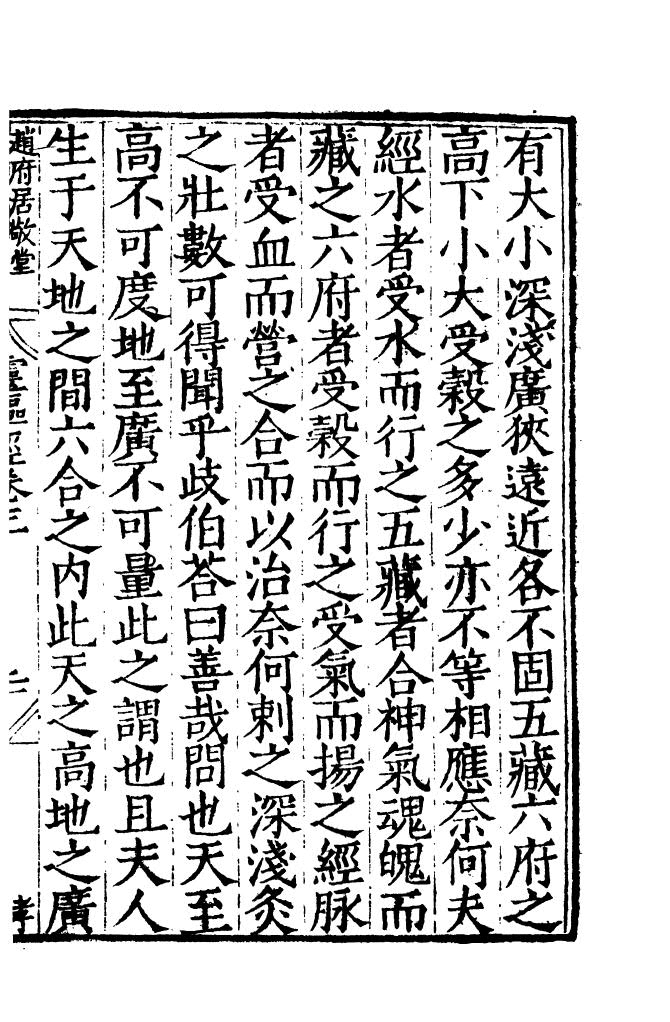 有大小深淺廣狹遠近各不固五藏六府之
高下小大受穀之多少亦不等相應奈何夫
經水者受水而行之五藏者合神氣魂魄而
藏之六府者受穀而行之受氣而揚之經脉
者受血而營之合而以治奈何刺之深淺灸
之壯數可得聞乎歧伯荅曰善哉問也天至
高不可度地至廣不可量此之謂也且夫人
生于天地之間六合之内此天之高地之廣
趙府居敬堂